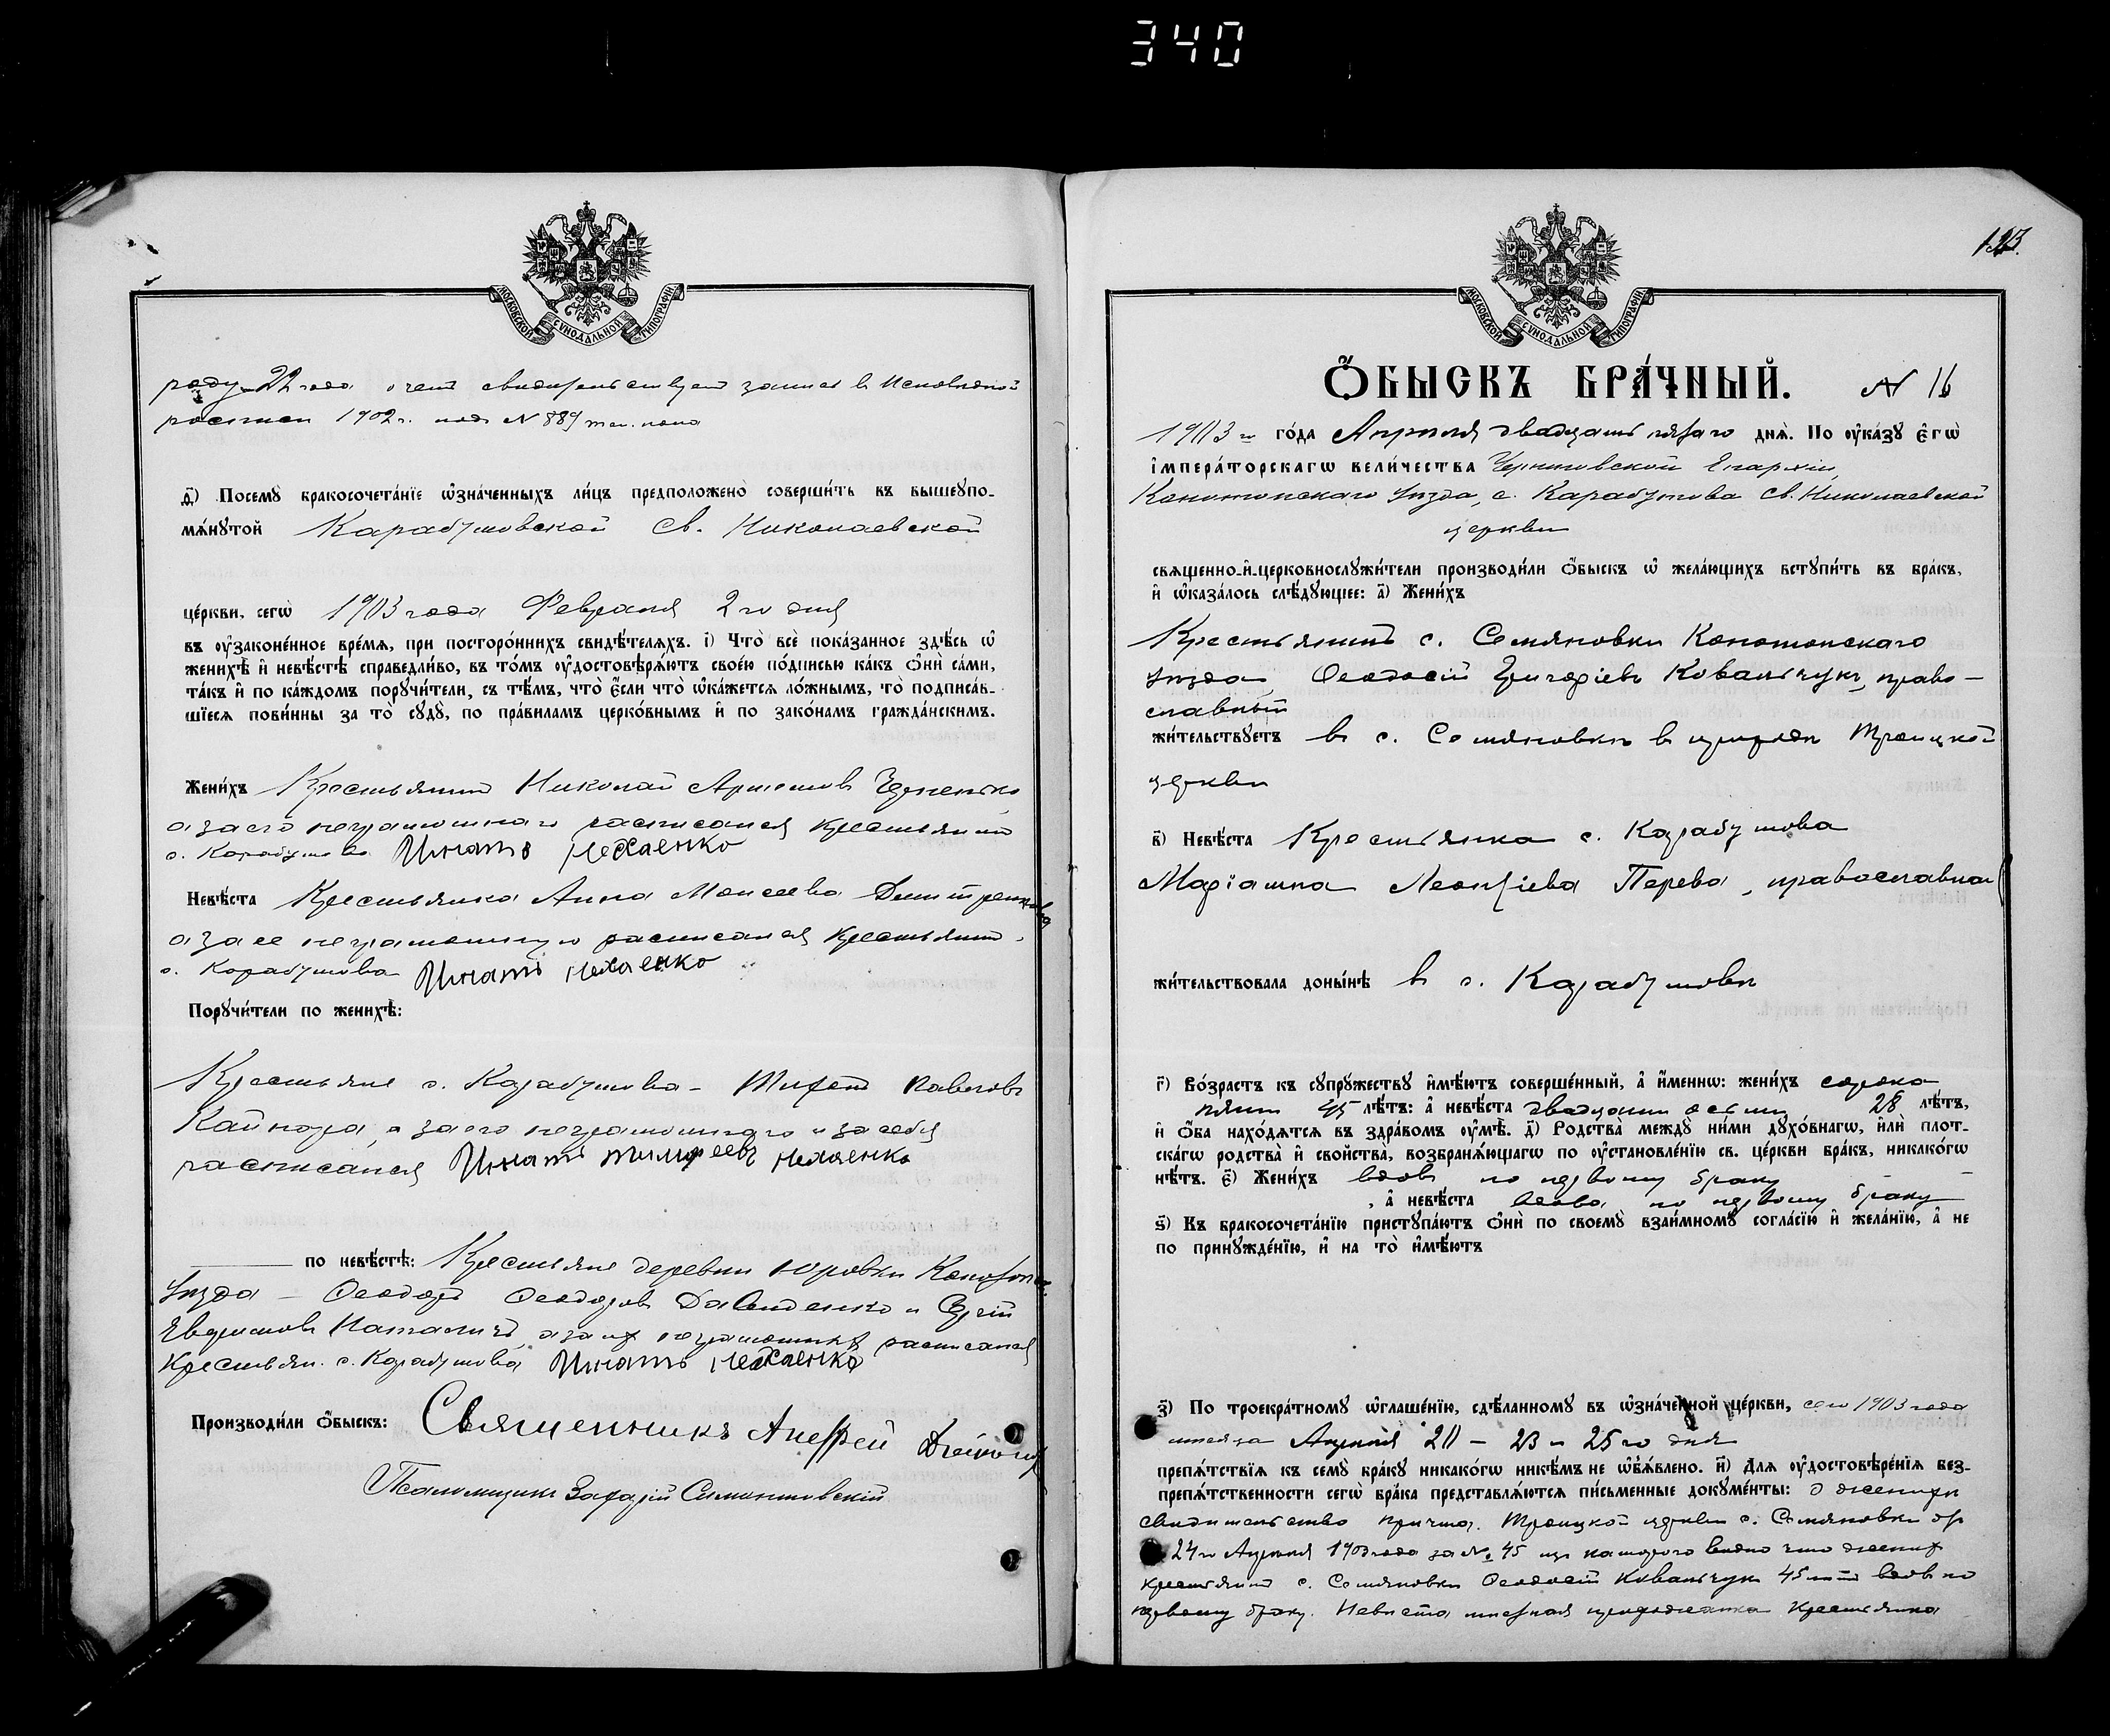 340
МОСКОВСКОЙ СѴНОДАЛЬНОЙ ТИПОГРАФІИ
роду 22 года о чемъ свидѣтельствуетъ запись въ Исповѣдной
росписи 1902 г. подъ № 889 жен. пола
д҃) Посемꙋ̀ бракосочета́нїе ѡ҆зна́ченныхъ ли́цъ предположено̀ соверши́ть въ вышеꙋпо-
мѧ́нꙋтой Карабутовской Св. Николаевской
це́ркви, сегѡ̀ 1903 года Февраля 2 го дня
въ ᲂу҆законе́нное вре́мѧ, при посторо́ннихъ свидѣ́телѧхъ. і҃) Что̀ всѐ пока́занное здѣ́сь ѡ҆
женихѣ̀ и҆ невѣ́стѣ справедли́во, въ то́мъ ᲂу҆достовѣрѧ́ютъ свое́ю по́дписью ка́къ ѻ҆нѝ са́ми,
та́къ и҆ по ка́ждомъ порꙋчи́тели, съ тѣ́мъ, что̀ є҆́сли что̀ ѡ҆ка́жетсѧ ло́жнымъ, то̀ подписа́в-
шїесѧ пови́нны за то̀ сꙋдꙋ̀, по пра́виламъ церко́внымъ и҆ по зако́намъ гражда́нскимъ.
Жени́хъ Крестьянинъ Николай Артемовъ
а за его неграмотнаго расписался крестьянинъ
с. Карабутова Игнатъ Нехаенко
Невѣ́ста Крестьянка Анна Моисеева Дмитренкова
а за ее неграмотную расписался крестьянинъ
с. Карабутова Игнатъ Нехаенко
Порꙋчи́тели по женихѣ̀:
Крестьяне с. Карабутова – Павловъ
а за его неграмотнаго и за себя
расписался Игнатъ Нехаенко
по невѣ́стѣ: Крестьяне деревни Юровки Конотоп.
уѣзда – Ѳеодоръ Ѳеодоровъ Давиденко и
а за их неграмотных расписался
крестьян. с. Карабутова Игнатъ Нехаенко
Производи́ли ѻ҆́быскъ: Священникъ Андрей
Псаломщикъ Захарій Симонтовскій
МОСКОВСКОЙ СѴНОДАЛЬНОЙ ТИПОГРАФІИ
ѺБЫСКЪ БРА́ЧНЫЙ. № 16
1903 го го́да Апрѣля двадцать пятаго днѧ̀. По ᲂу҆ка́зꙋ є҆гѡ̀
і҆мпера́торскагѡ вели́чества Черниговской Епархіи,
Конотопскаго уѣзда, с. Карабутова Св. Николаевской
церкви
свѧще́нно-и҆-церковнослꙋжи́тели производи́ли ѻ҆́быскъ ѡ҆ жела́ющихъ встꙋпи́ть въ бра́къ,
и҆ ѡ҆каза́лось слѣ́дꙋющее: а҃) Жени́хъ
Крестьянинъ с. Семяновки Конотопскаго
уѣзда, Ѳеодосій Григоріевъ Ковальчукъ, право-
славный
жи́тельствꙋетъ въ с. Семяновкѣ въ приходѣ Троицкой
церкви
в҃) Невѣ́ста Крестьянка с. Карабутова
Маріамна Леонтіева Перева, православная
жи́тельствовала доны́нѣ въ с. Карабутовѣ
г҃) Во́зрастъ къ сꙋпрꙋ́жествꙋ и҆мѣ́ютъ соверше́нный, а҆ и҆́меннѡ: жени́хъ сорока
пяти 45 лѣ́тъ: а҆ невѣ́ста двадцати осьми 28 лѣ́тъ,
и҆ ѻ҆́ба нахо́дѧтсѧ въ здра́вомъ ᲂу҆мѣ̀. д҃) Родства̀ междꙋ̀ ни́ми дꙋхо́внагѡ, и҆лѝ плот-
ска́гѡ родства̀ и҆ сво́йства, возбранѧ́ющагѡ по ᲂу҆становле́нїю св. це́ркви бра́къ, никако́гѡ
нѣ́тъ. є҃) Жени́хъ вдовъ по первому браку
, а҆ невѣ́ста вдова по первому браку
ѕ҃) Къ бракосочета́нїю пристꙋпа́ютъ ѻ҆нѝ по своемꙋ̀ взаи́мномꙋ согла́сїю и҆ жела́нїю, а҆ не
по принꙋжде́нїю, и҆ на то̀ и҆мѣ́ютъ
з҃) По троекра́тномꙋ ѡ҆глаше́нїю, сдѣ́ланномꙋ въ ѡ҆зна́ченной це́ркви, сего 1903 года
мѣсяца Апрѣля 20 – 23 и 25 го дня
препѧ́тствїѧ къ семꙋ̀ бра́кꙋ никако́гѡ никѣ́мъ не ѡ҆б̾ѧ́влено. и҃) Длѧ ᲂу҆достовѣре́нїѧ без-
препѧ́тственности сегѡ̀ бра́ка представлѧ́ютсѧ пи́сьменные докꙋме́нты: о женихѣ
свидѣтельство причта Троицкой церкви с. Семяновки отъ
24 го Апрѣля 1903 года за № 45 изъ котораго видно что женихъ
крестьянинъ с. Семяновки Ѳеодосій Ковальчукъ 45 лѣтъ вдовъ по
первому браку. Невѣста мѣстная прихожанка крестьянка